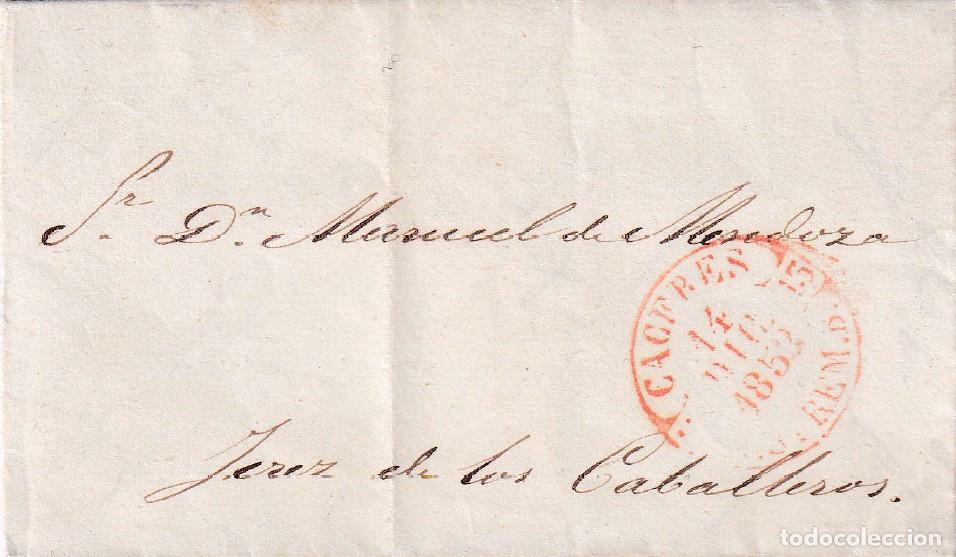 Sr. Dn. Manuel de Mendoza
CACERES
14
DIC.
EXTREM.ª
Jerez de los Caballeros.
todocoleccion